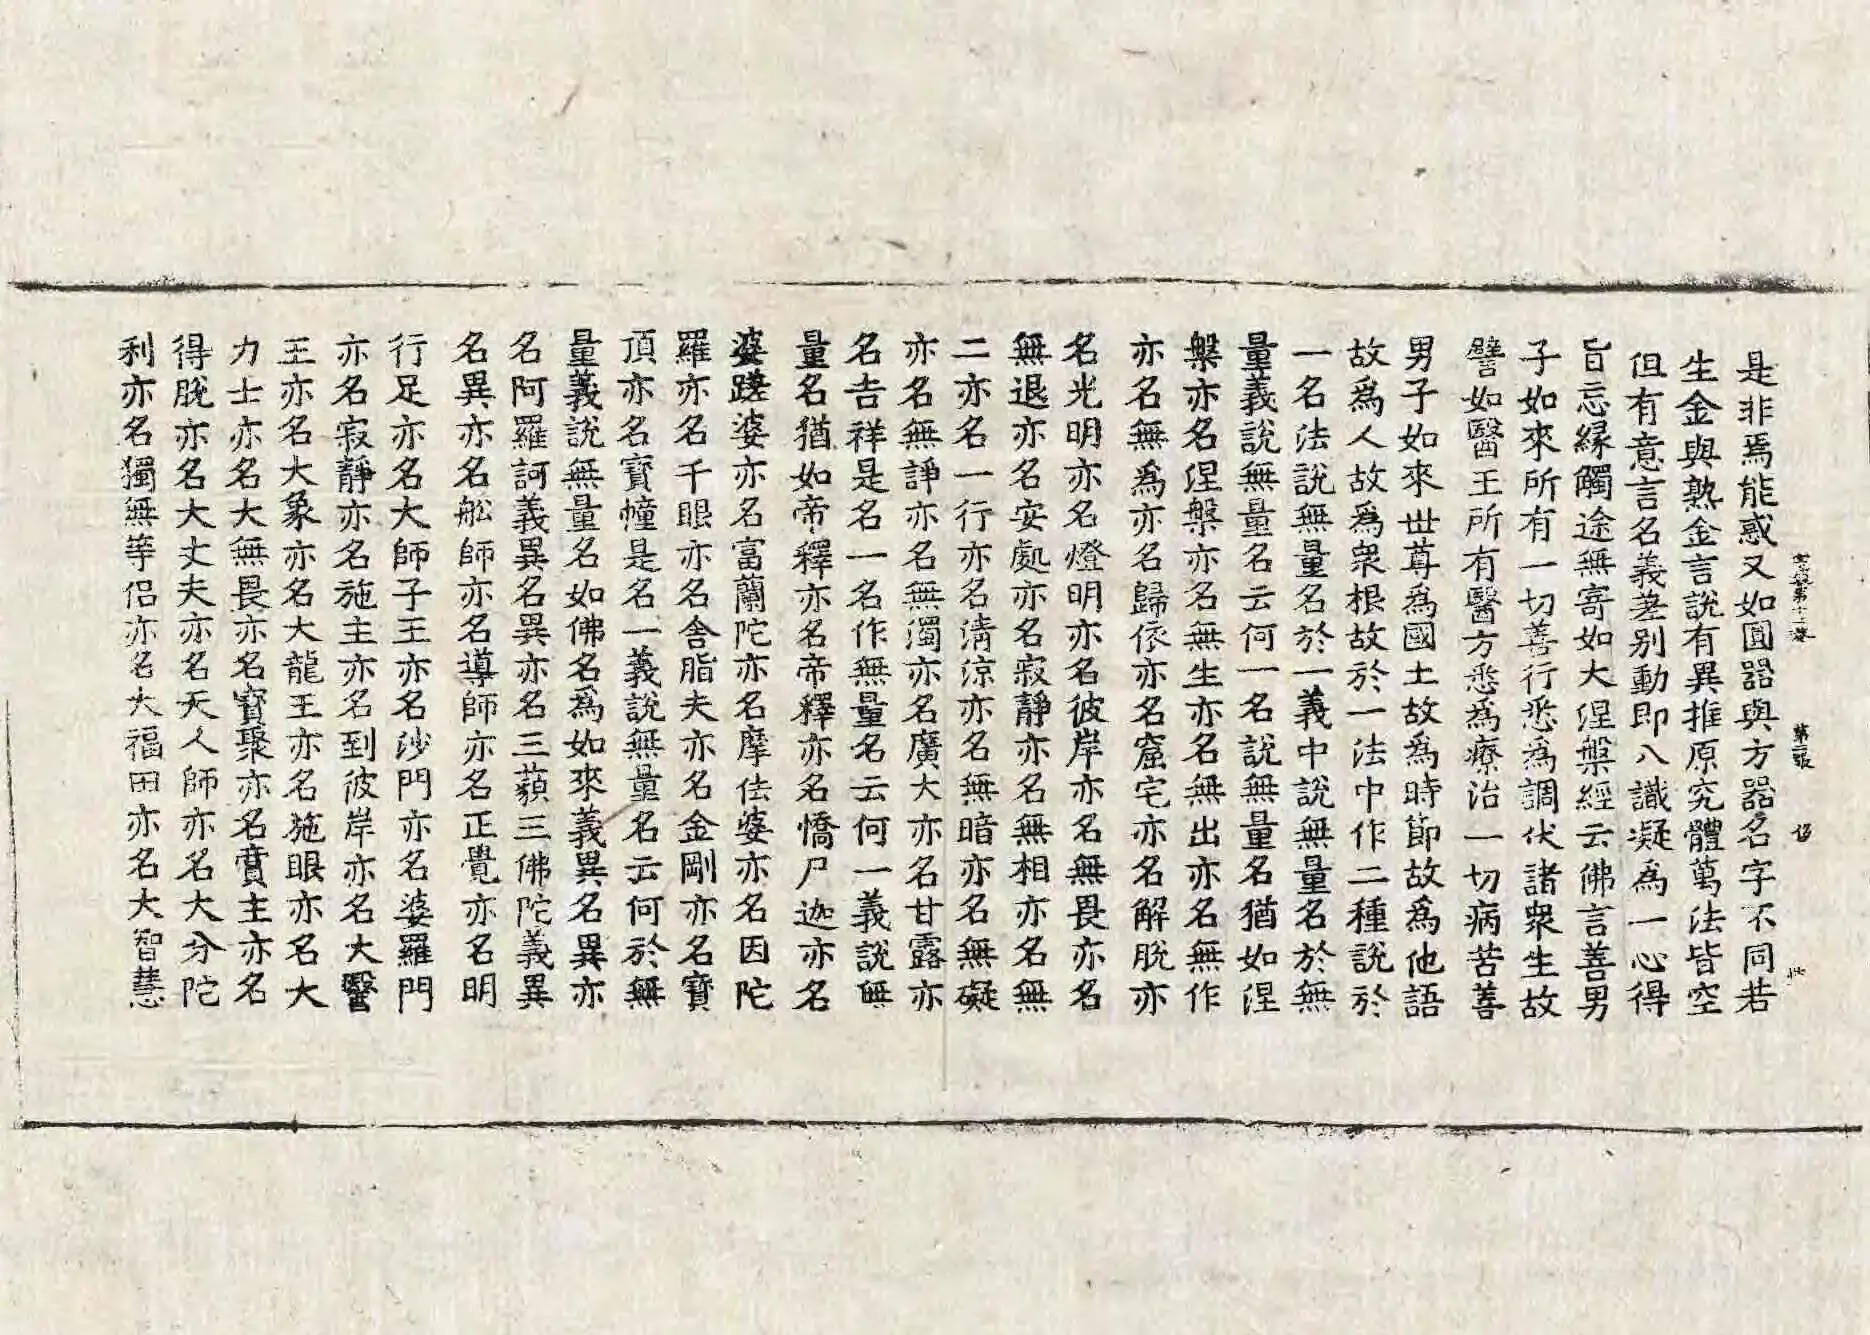 是非焉能惑又如圓器與方器名字不同若
生金與熟金言說有異推原究體萬法皆空
但有意言名義差别動即八識凝為一心得
旨忘緣觸途無寄如大涅槃經云佛言善男
子如來所有一切善行悉為調伏諸衆生故
譬如醫王所有醫方悉為療治一切病苦善
男子如來世尊為國土故為時節故為他語
故為人故為衆根故於一法中作二種說於
一名法說無量名於一義中說無量名於無
量義說無量名云何一名說無量名猶如涅
槃亦名涅槃亦名無生亦名無出亦名無作
亦名無為亦名歸依亦名窟宅亦名解脫亦
名光明亦名燈明亦名彼岸亦名無畏亦名
無退亦名安處亦名寂靜亦名無相亦名無
二亦名一行亦名清涼亦名無暗亦名無礙
亦名無諍亦名無濁亦名廣大亦名甘露亦
名吉祥是名一名作無量名云何一義說無
量名猶如帝釋亦名帝釋亦名憍尸迦亦名
婆蹉婆亦名富蘭陀亦名摩佉婆亦名因陀
羅亦名千眼亦名舍脂夫亦名金剛亦名寶
頂亦名寶幢是名一義說無量名云何於無
量義說無量名如佛名為如來義異名異亦
名阿羅訶義異名異亦名三藐三佛陀義異
名異亦名舩師亦名導師亦名正覺亦名明
行足亦名大師子王亦名沙門亦名婆羅門
亦名寂靜亦名施主亦名到彼岸亦名大醫
王亦名大象亦名大龍王亦名施眼亦名大
力士亦名大無畏亦名寶聚亦名賣主亦名
得脫亦名大丈夫亦名天人師亦名大分陀
利亦名獨無等侶亦名大福田亦名大智慧